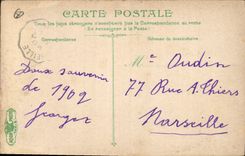 CARTE POSTALE
Tous les pays étrangers n'acceptent pas la Correspondance au recto
(Se renseigner à la Poste)
Correspondance
Doux souvenir
de 1902
Georges
Mˡᵉ Oudin
77 Rue A. Thiers
Marseille